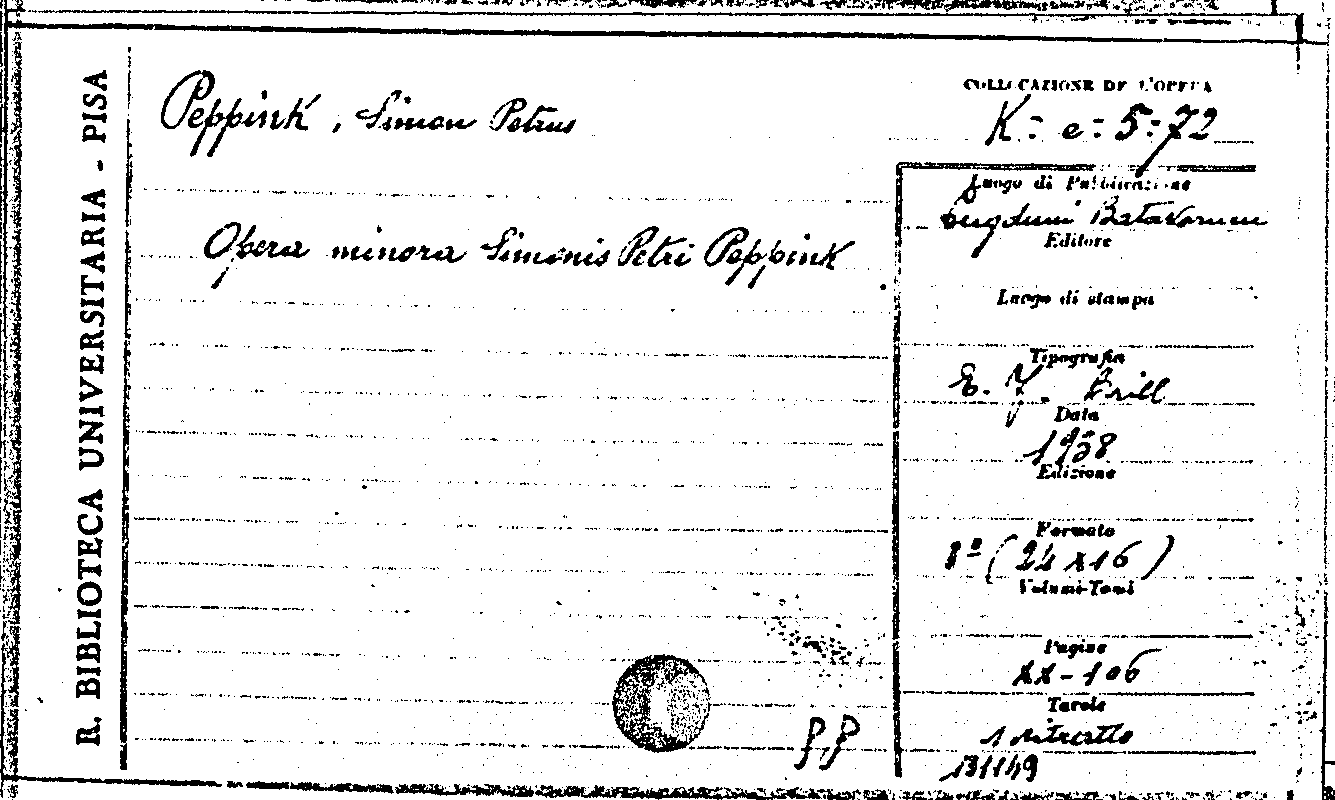 R. BIBLIOTECA UNIVERSITARIA - PISA
Peppink, Simon Petrus
Opera minora Simonis Petri Peppink
P.P
COLLOCAZIONE DELL'OPERA
K - e - 5 - 72
Luogo di Pubblicazione
Lugduni Batavorum
Editore
Luogo di stampa
Tipografia
E. J. Brill
Data
1938
Edizione
Formato
8º (24 x 16)
Volumi-Tomi
Pagine
XX - 106
Tavole
1 ritratto
131149